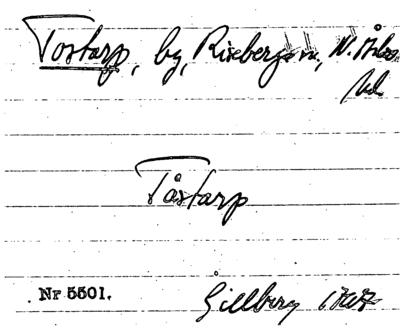 Tostarp, by, Riseberga sn, N. Åsbo
hd
Tåstarp
Nr 5501. Gillberg 1767